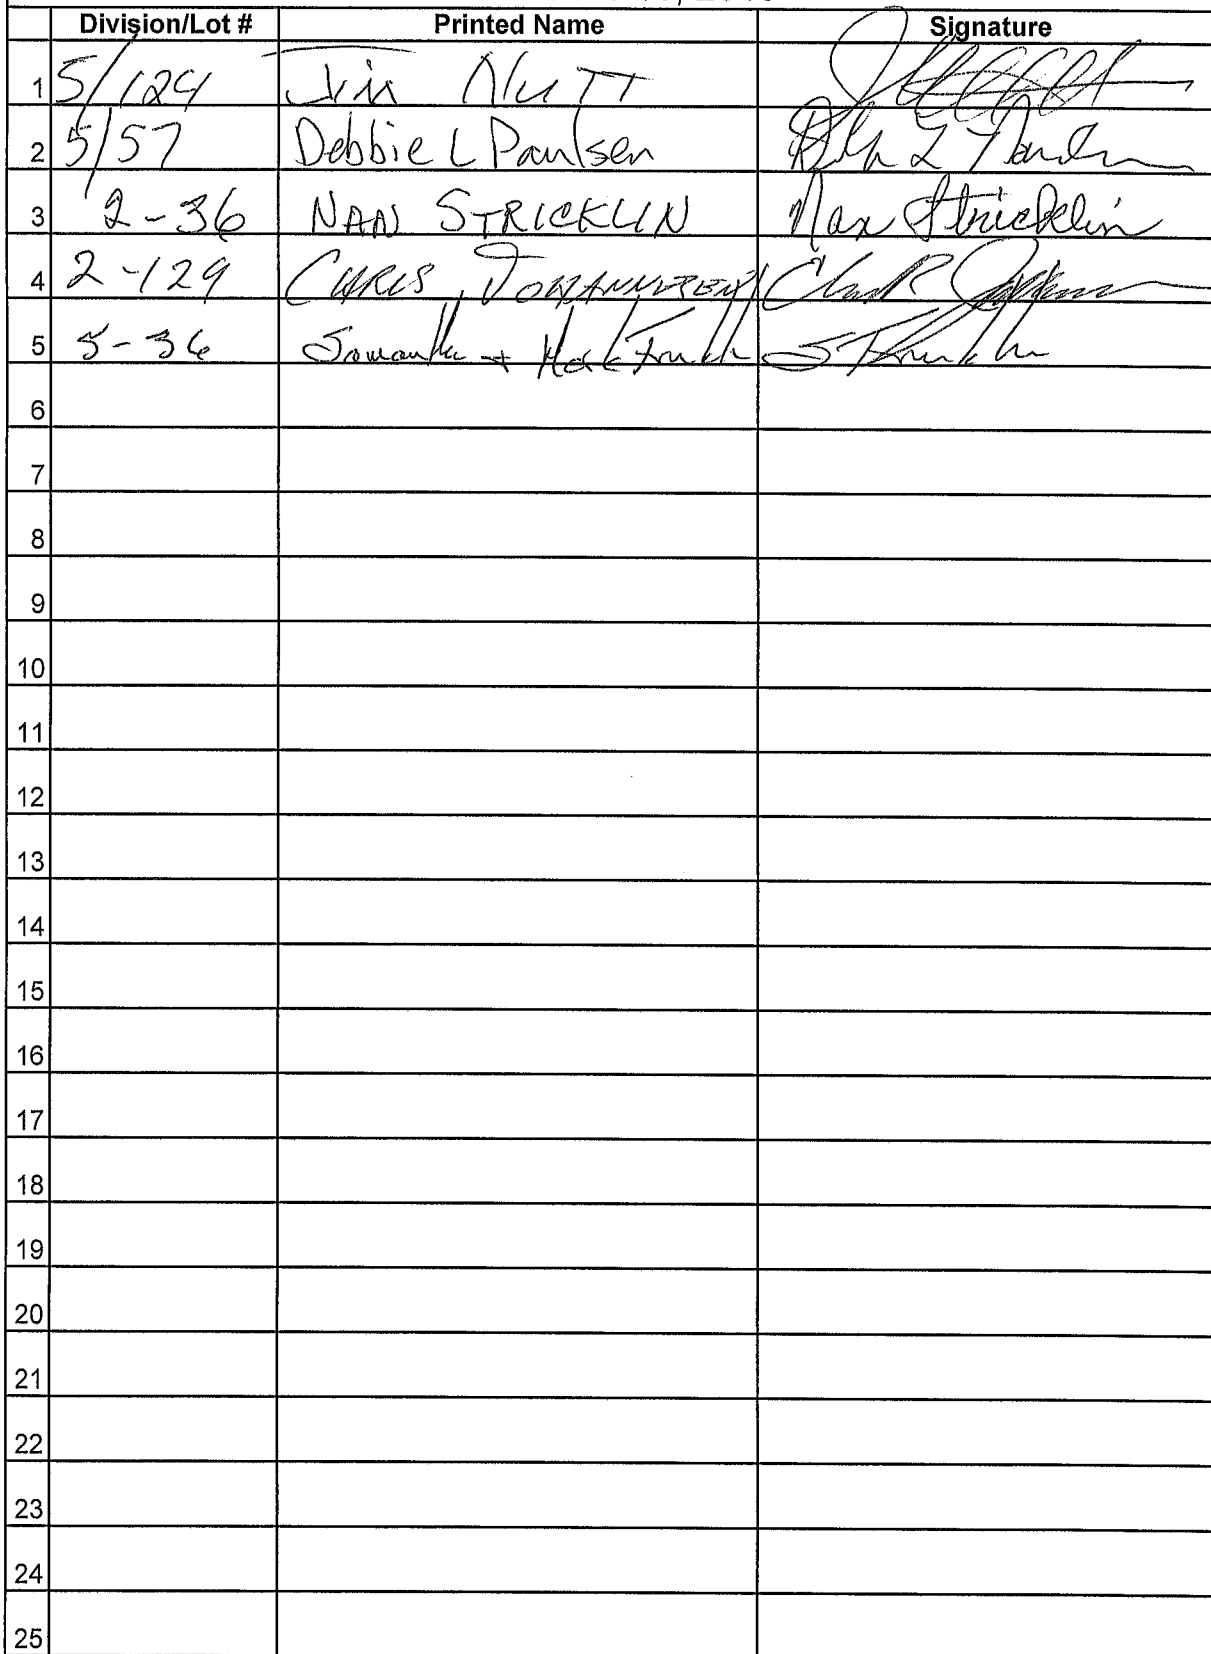 Division/Lot # Printed Name Signature
1 5/124 Jim NuTT
2 5/57 Debbie L Paulsen
3 2-36 NAN STRICKLIN Nan Stricklin
4 2-129 CHRIS JOHANNSEN
5 5-36 Samantha + Mark
6
7
8
9
10
11
12
13
14
15
16
17
18
19
20
21
22
23
24
25